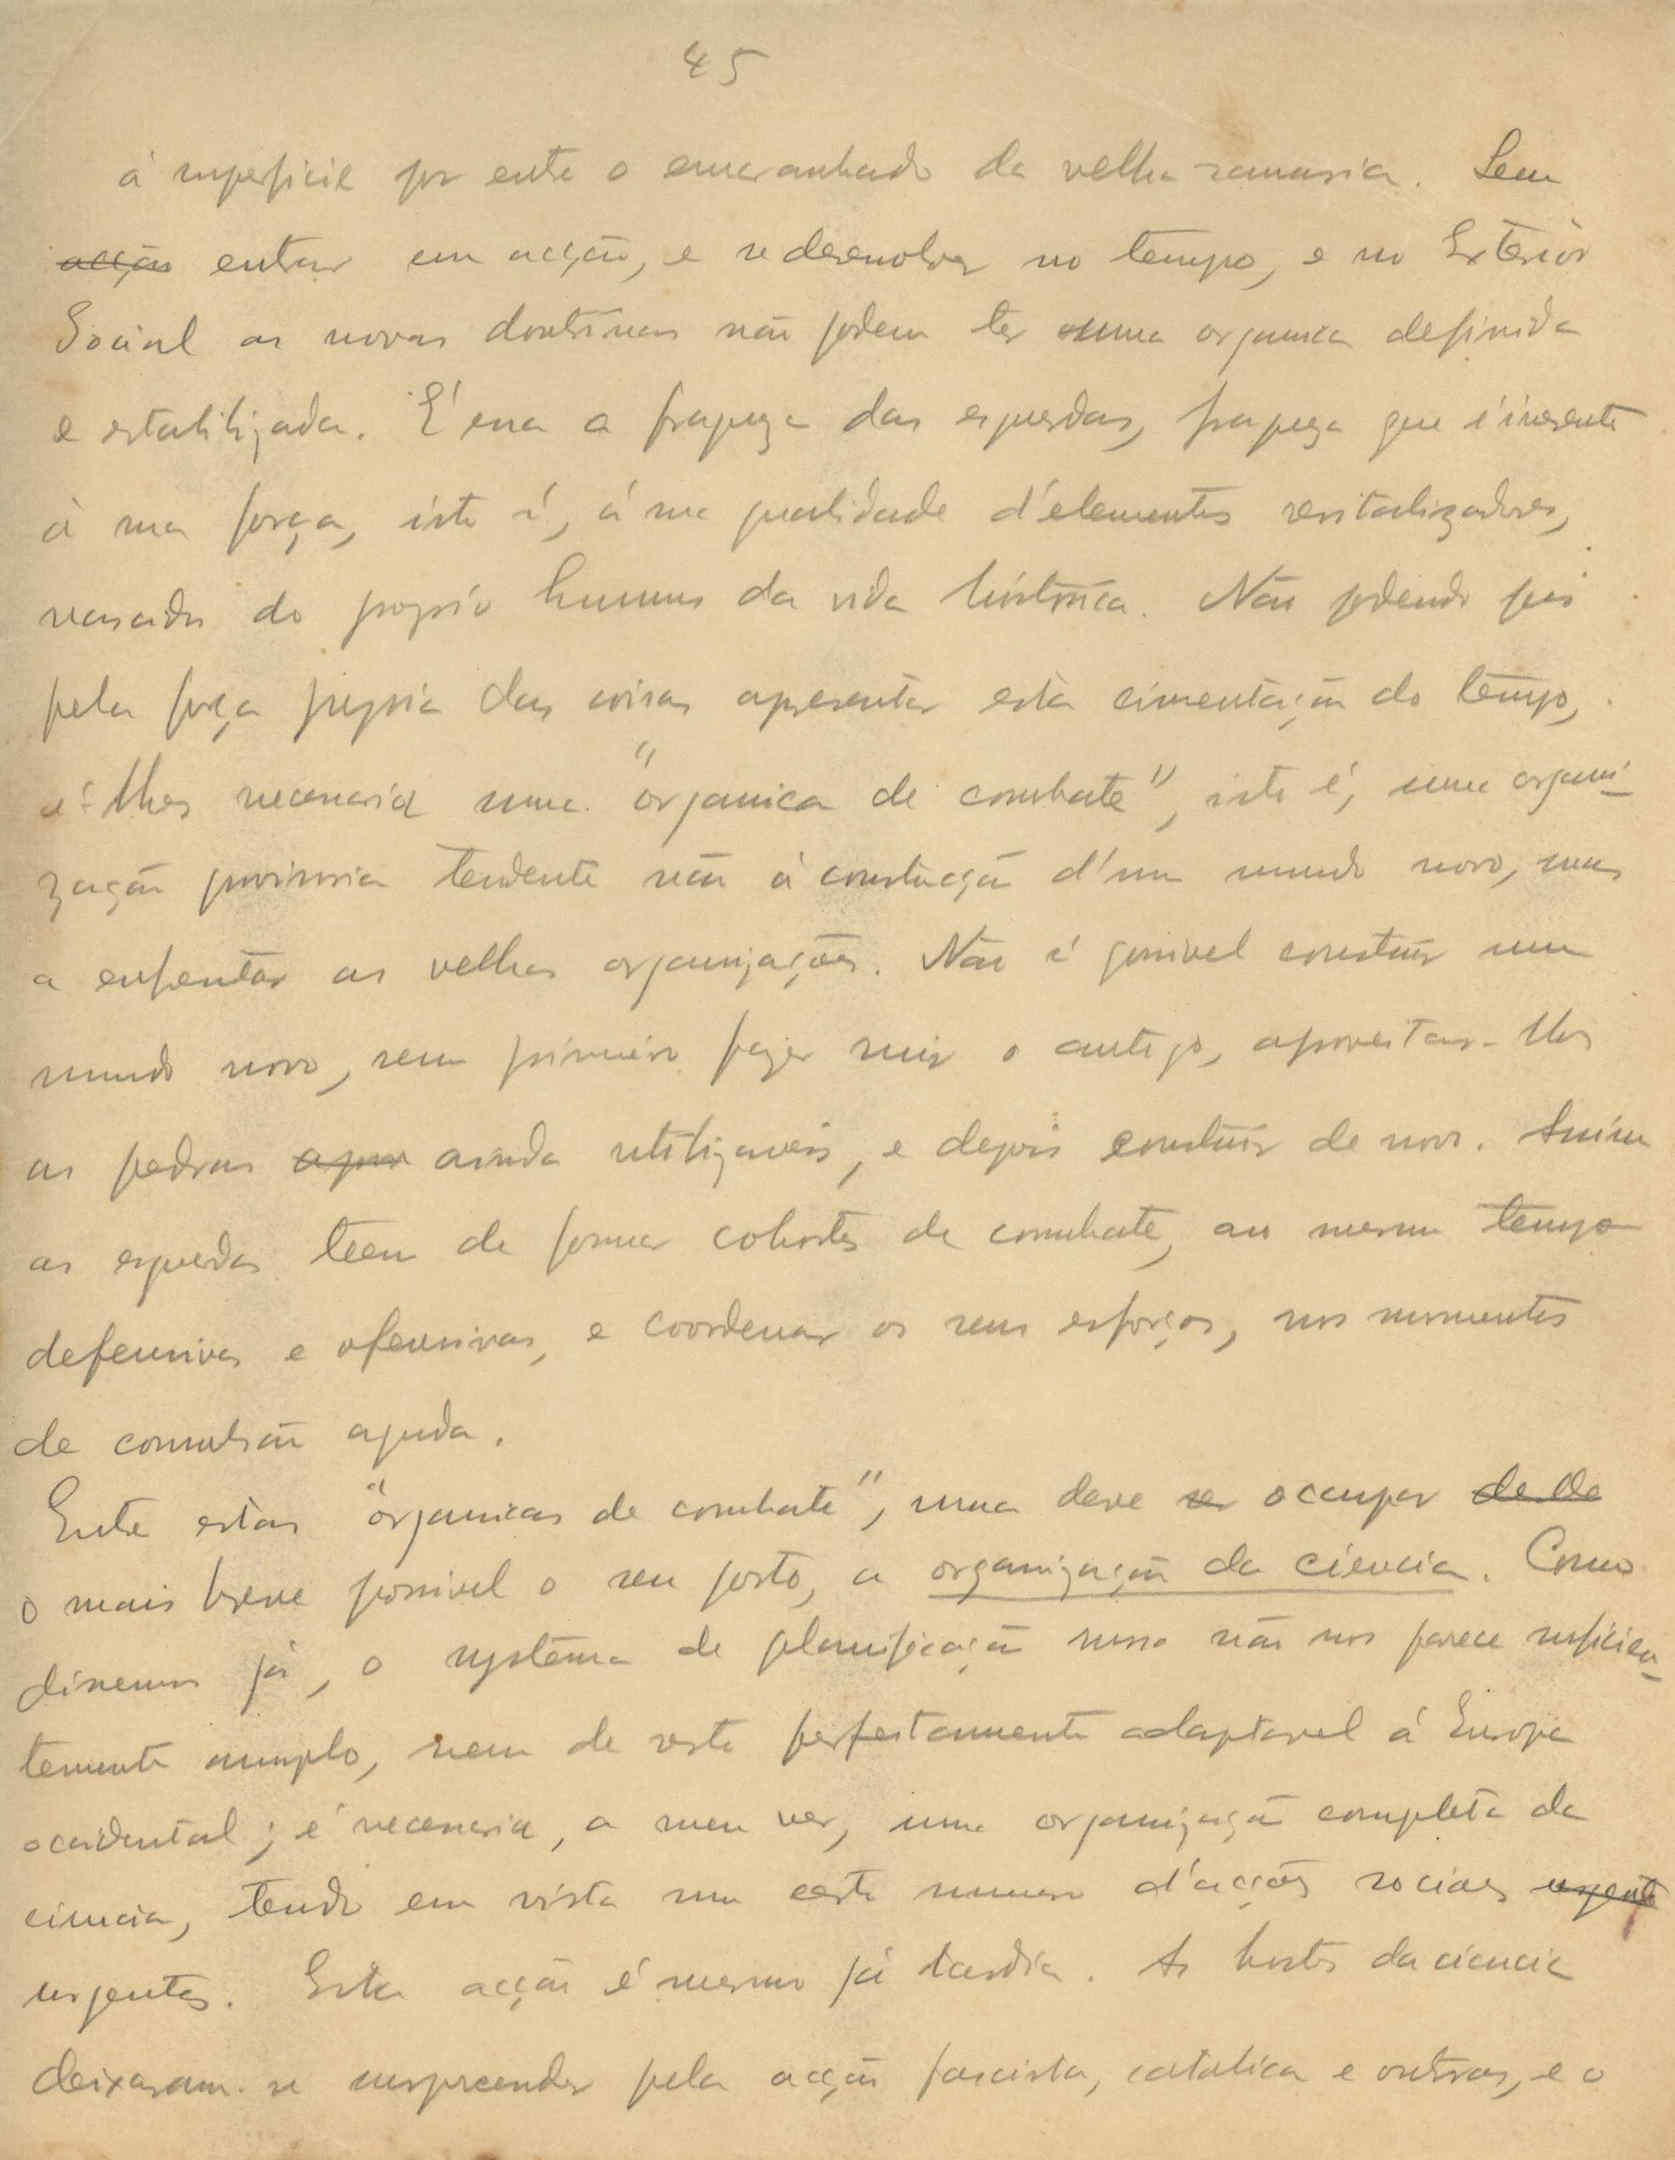 45
á superficie por entre o emaranhado da velha ramaria. Sem
acção entrar em acção, e se desenvolver no tempo, e no Exterior
Social as novas doutrinas não podem ter uma organica definida
e estabilizada. É essa a fraqueza das esquerdas, fraqueza que é inerente
á sua força, isto é, á sua qualidade d'elementos revitalizadores,
vasados do proprio humus da vida histórica. Não podendo pois
pela força propria das coisas apresentar esta cimentação do tempo,
é-lhes necessaria uma "organica de combate", isto é, uma organi-
zação provisoria tendente não á construcção d'um mundo novo, mas
a enfrentar as velhas organizações. Não é possivel construir um
mundo novo, sem primeiro fazer ruir o antigo, aproveitar-lhes
as pedras ainda utilizaveis, e depois construir de novo. Assim
as esquerdas teem de formar cohortes de combate, ao mesmo tempo
defensivas e ofensivas, e coordenar os seus esforços, nos momentos
de convulsão aguda.
Entre estas "organicas de combate", uma deve ser ocupar desde
o mais breve possivel o seu posto, a organização da ciencia. Como
dissemos já, o systema de planificação russo não nos parece suficien-
temente amplo, nem de resto perfeitamente adaptavel á Europa
ocidental; é necessaria, a meu ver, uma organização completa da
ciencia, tendo em vista um certo numero d'acções sociaes urgente
urgentes. Esta acção é mesmo já tardia. As hostes da ciencia
deixaram-se surpreender pela acção fascista, catolica e outras, e o